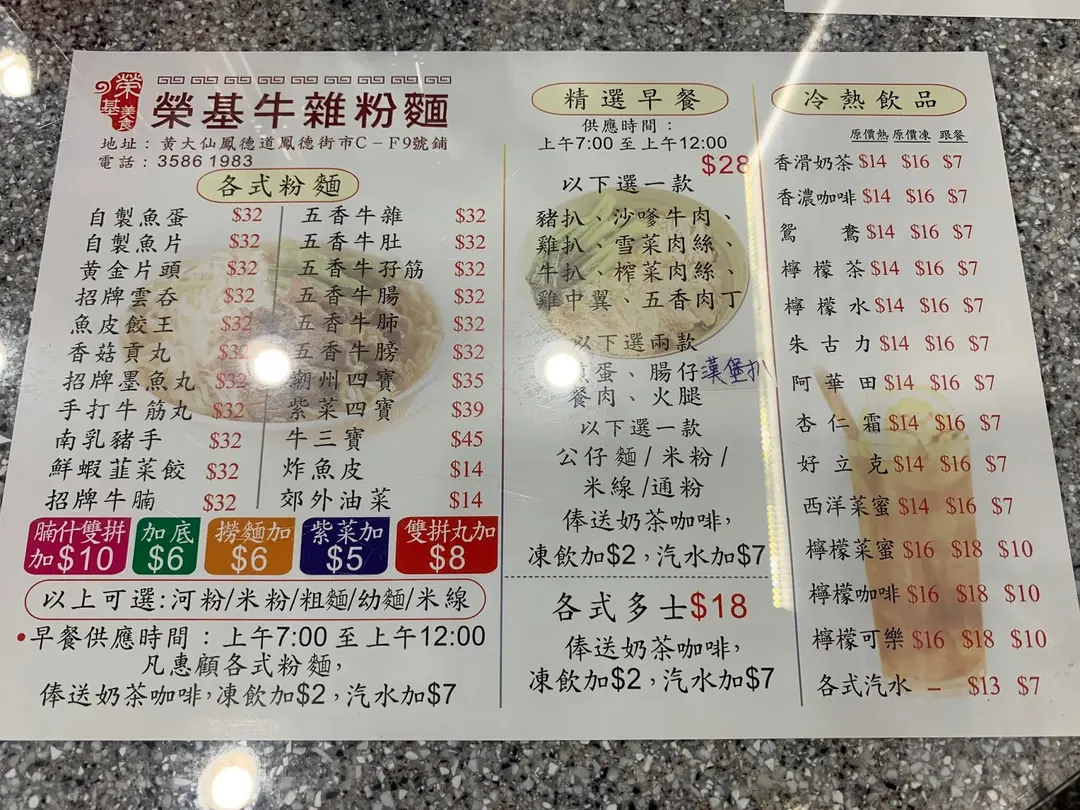 榮基美食
榮基牛雜粉麵
地址：黃大仙鳳德道鳳德街市C－F9號鋪
電話：3586 1983
各式粉麵
自製魚蛋 $32 五香牛雜 $32
自製魚片 $32 五香牛肚 $32
黃金片頭 $32 五香牛孖筋 $32
招牌雲吞 $32 五香牛腸 $32
魚皮餃王 $32 五香牛肺 $32
香菇貢丸 $32 五香牛膀 $32
招牌墨魚丸 $32 潮州四寶 $35
手打牛筋丸 $32 紫菜四寶 $39
南乳豬手 $32 牛三寶 $45
鮮蝦韮菜餃 $32 炸魚皮 $14
招牌牛腩 $32 郊外油菜 $14
腩什雙拼加$10
加底$6
撈麵加$6
紫菜加$5
雙拼丸加$8
以上可選:河粉/米粉/粗麵/幼麵/米線
•早餐供應時間：上午7:00 至上午12:00
凡惠顧各式粉麵，
俸送奶茶咖啡，凍飲加$2，汽水加$7
精選早餐
供應時間：
上午7:00 至上午12:00
$28
以下選一款
豬扒、沙嗲牛肉、
雞扒、雪菜肉絲、
牛扒、榨菜肉絲、
雞中翼、五香肉丁
以下選兩款
煎蛋、腸仔 漢堡扒
餐肉、火腿
以下選一款
公仔麵/米粉/
米線/通粉
俸送奶茶咖啡，
凍飲加$2，汽水加$7
各式多士$18
俸送奶茶咖啡，
凍飲加$2，汽水加$7
冷熱飲品
原價熱 原價凍 跟餐
香滑奶茶 $14 $16 $7
香濃咖啡 $14 $16 $7
鴛鴦 $14 $16 $7
檸檬茶 $14 $16 $7
檸檬水 $14 $16 $7
朱古力 $14 $16 $7
阿華田 $14 $16 $7
杏仁霜 $14 $16 $7
好立克 $14 $16 $7
西洋菜蜜 $14 $16 $7
檸檬菜蜜 $16 $18 $10
檸檬咖啡 $16 $18 $10
檸檬可樂 $16 $18 $10
各式汽水 – $13 $7